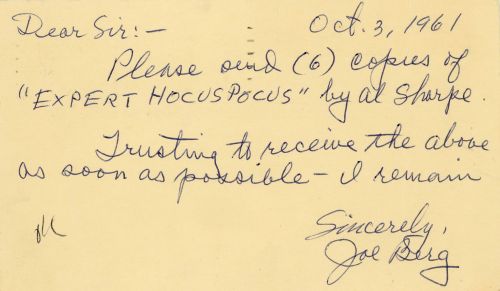 Dear Sir:— Oct. 3, 1961
Please send (6) copies of
"EXPERT HOCUSPOCUS" by Al Sharpe.
Trusting to receive the above
as soon as possible — I remain
Sincerely,
Joe Berg